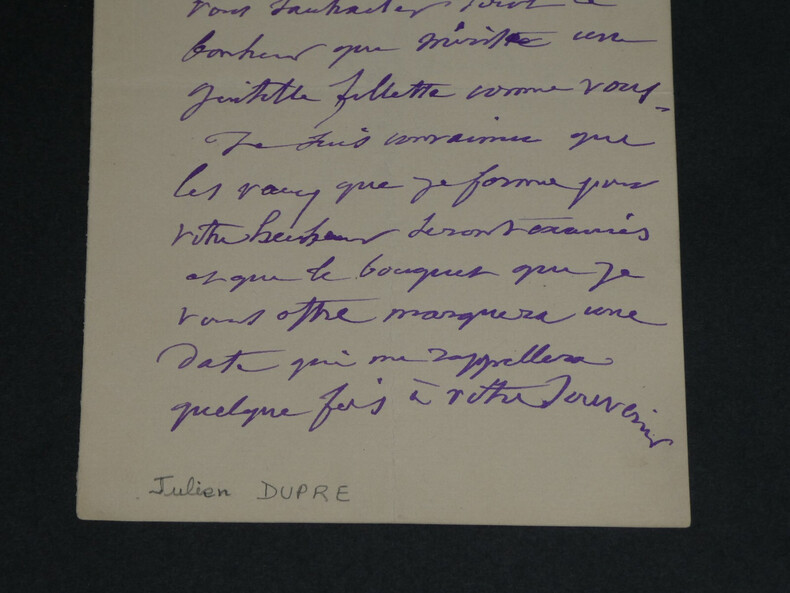 vous souhaiter tout le
bonheur que mérite une
gentille fillette comme vous-
Je suis convaincu que
les vœux que je forme pour
votre bonheur seront exaucés
et que le bouquet que je
vous offre marquera une
date qui me rappellera
quelque fois à votre souvenir
Julien DUPRE